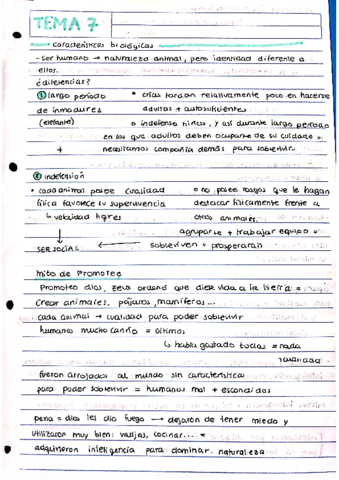 TEMA 7
características biológicas
- ser humano → naturaleza animal, pero identidad diferente a
ellos.
¿diferencias?
① largo periodo
de inmadurez
(elefante)
• crías tardan relativamente poco en hacerse
adultos + autosuficientes
o indefenso niños, y así durante largo periodo
en los que adultos deben ocuparse de su cuidado =
+ necesitamos compañía demás para sobrevivir.
② indefensión
• cada animal posee cualidad
física favorece su supervivencia
↳ velocidad tigres
o no posee rasgos que le hagan
destacar físicamente frente a
otros animales.
agruparse + trabajar equipo =
SER SOCIAL ← sobreviven + prosperaran
mito de Prometeo
Prometeo dios, Zeus ordenó que diese vida a la tierra =
crear animales, pájaros, mamíferos...
cada animal → cualidad para poder sobrevivir
humanos mucho cariño = últimos
↳ había gastado todas = nada
cualidad
= fueron arrojados al mundo sin característica
para poder sobrevivir = humanos mal + escondidos
pena = dios les dio fuego → dejaron de tener miedo y
utilizaron muy bien: vasijas, cocinar... =
adquirieron inteligencia para dominar naturaleza